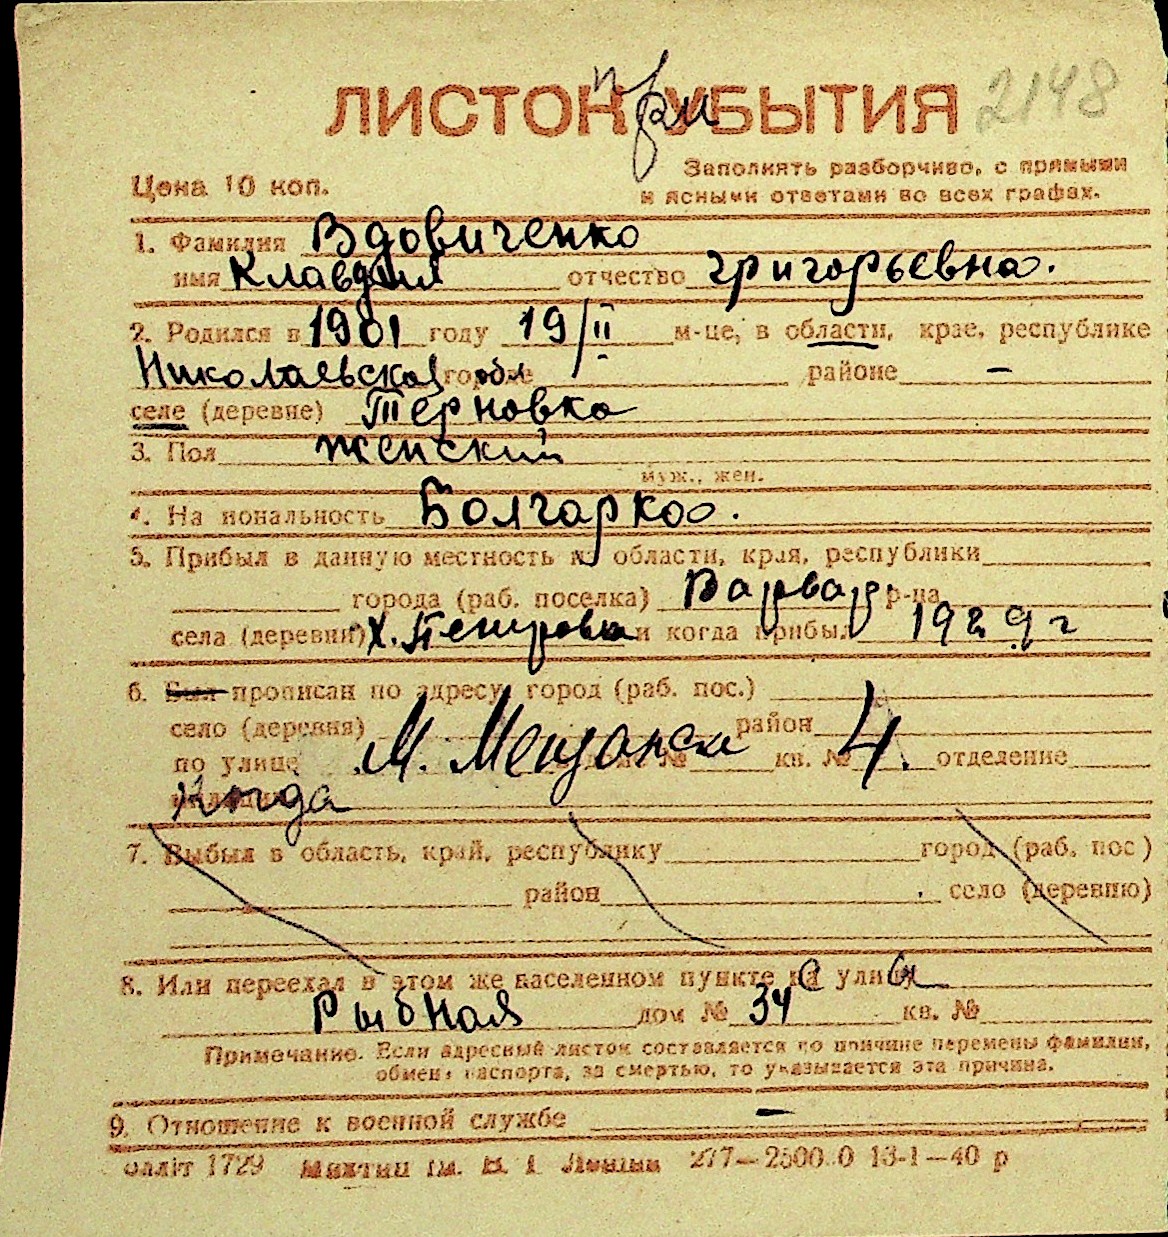 при
ЛИСТОК УБЫТИЯ 2148
Цена 10 коп.
Заполнять разборчиво, с прямыми
и ясными ответами во всех графах.
1. Фамилия Вдовиченко
имя Клавдия отчество григорьевна.
2. Родился в 1901 году 19/II м-це, в области, крае, республике
Николаевской обл городе районе —
селе (деревне) Терновка
3. Пол женский
муж., жен.
4. На иональность Болгарка.
5. Прибыл в данную местность из области, края, республики
города (раб. поселка) Варвар р-на
села (деревни) х. Петровка и когда прибыл 1929 г
6. Был прописан по адресу город (раб. пос.)
село (деревня) район
по улице М. Мещанская № кв. № 4. отделение
Когда
7. Выбыл в область, край, республику город (раб. пос)
район село (деревню)
8. Или переехал в этом же населенном пункте с улицы
Рыбная дом № 34 кв. №
Примечание. Если адресный листок составляется по причине перемены фамилии,
обмена паспорта, за смертью, то указывается эта причина.
9. Отношение к военной службе —
1729 им. В. І Леніна 277—25000 13-1—40 р